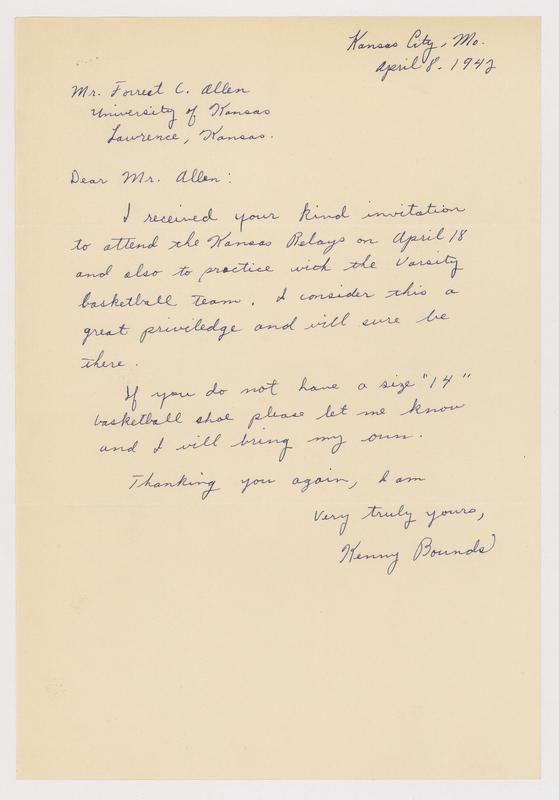 Kansas City, Mo.
April 8, 1942
Mr. Forrest C. Allen
University of Kansas
Lawrence, Kansas.
Dear Mr. Allen:
I received your kind invitation
to attend the Kansas Relays on April 18
and also to practice with the Varsity
basketball team. I consider this a
great priviledge and will sure be
there.
If you do not have a size "14"
basketball shoe please let me know
and I will bring my own.
Thanking you again, I am
Very truly yours,
Kenny Bounds